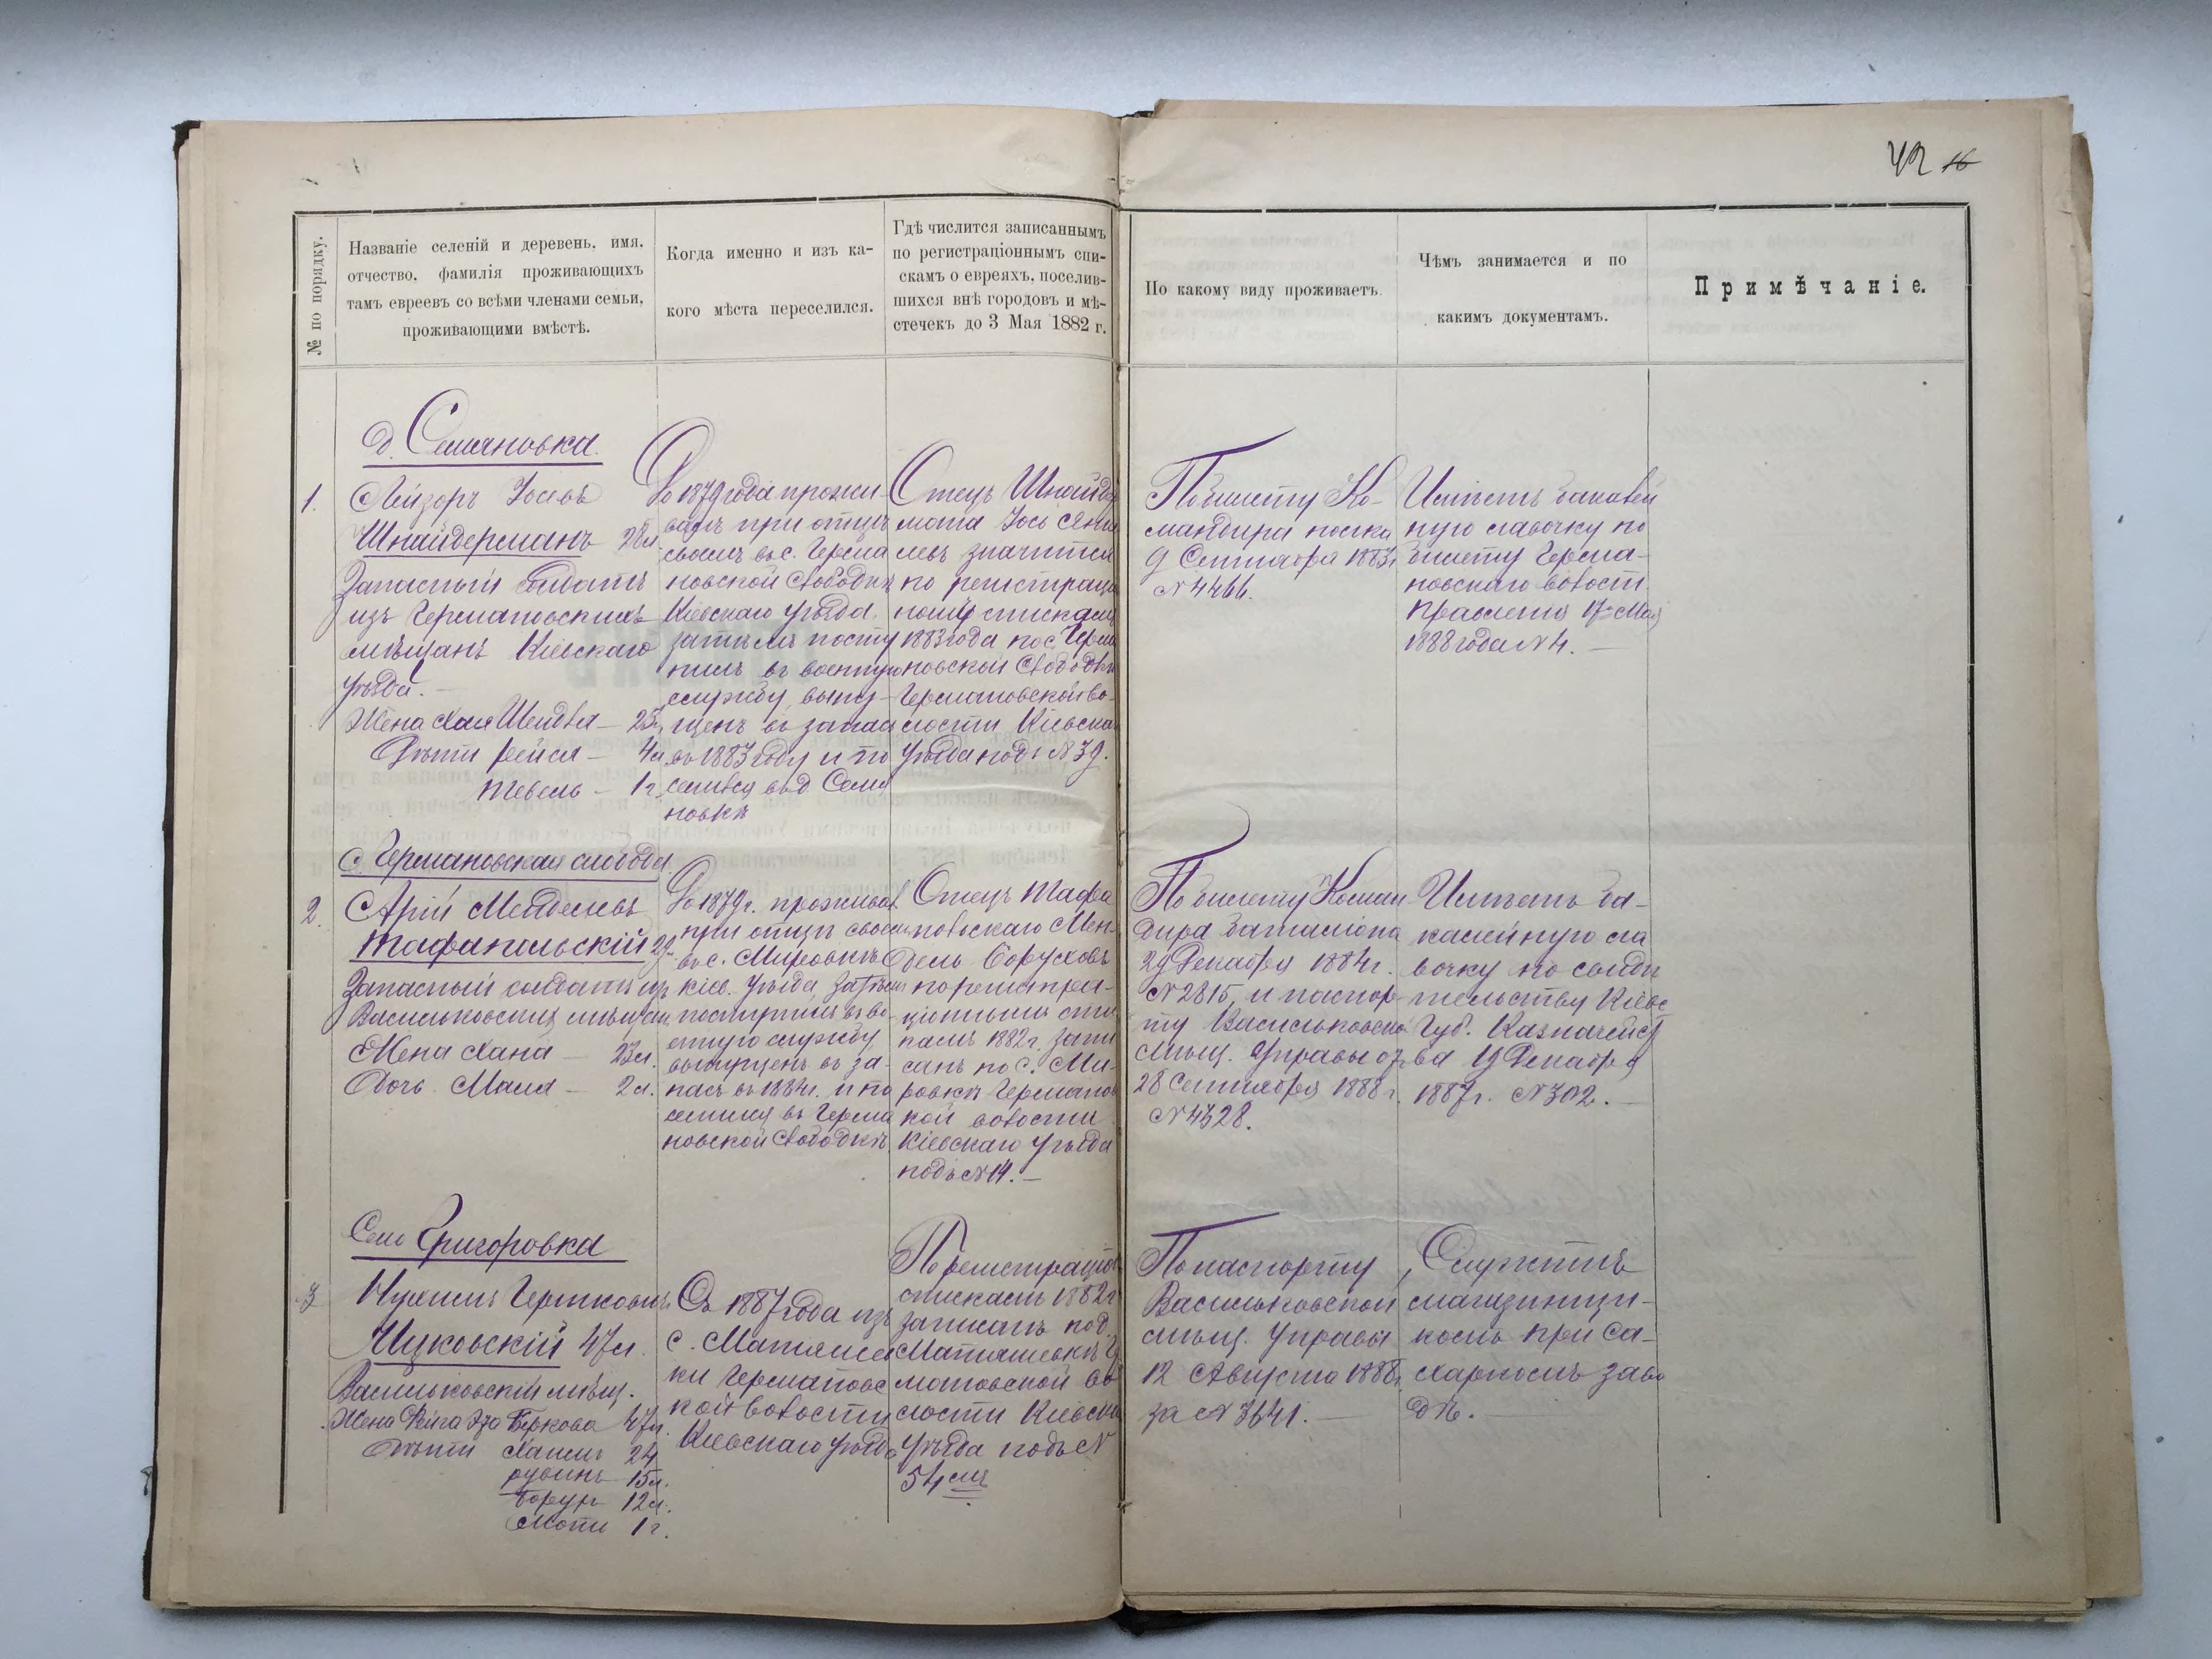 42 16
№ по порядку.
Названіе селеній и деревень, имя,
отчество, фамилія проживающихъ
тамъ евреевъ со всѣми членами семьи,
проживающими вмѣстѣ.
Когда именно и изъ ка-
кого мѣста переселился.
Гдѣ числится записаннымъ
по регистраціоннымъ спи-
скамъ о евреяхъ, поселив-
шихся внѣ городовъ и мѣ-
стечекъ до 3 Мая 1882 г.
По какому виду проживаетъ.
Чѣмъ занимается и по
какимъ документамъ.
Примѣчаніе.
д. Семяновка.
1.
Лейзоръ Іосевъ
Шнайдерманъ 28 л
Запасный солдатъ
изъ Германовскихъ
мѣщанъ Кіевскаго
уѣзда. —
Жена Хая Шендля — 25 л
Дѣти Рейся — 4 л
Тевель — 1 г.
До 1879 года прожи-
валъ при отцѣ
своемъ въ с. Герма
новской Слободкѣ
Кіевскаго уѣзда,
затѣмъ посту
пилъ въ военную
службу, выпу-
щенъ въ запас
въ 1883 году и по
селился въ д Семя
новкѣ
Отецъ Шнайдер
мана Іось Янке
левъ значится
по регистраціо
нымъ спискамъ
1883 года по с. Герма
новской Слободкѣ
Германовской во-
лости Кіевска
уѣзда подъ № 39.
По билету Ко-
мандира полка
9 Сентября 1883 г
№ 4466.
Имѣетъ бакалей
ную лавочку по
билету Герма-
новскаго волост.
Правленія 17 Мая
1888 года № 4. —
с. Германовская слобода.
2.
Арій Менделевъ
Тафапольскій 29
Запасный солдатъ изъ
Васильковскихъ мѣщан
Жена Хана — 23 л.
Дочь Маля — 2 л.
До 1879 г. проживал
при отцѣ своем
въ с. Мировкѣ
Кіев. уѣзда, затѣм
поступилъ въ во-
енную службу
выпущенъ въ за-
пасъ въ 1884 г. и по
селился въ Герма
новской Слободкѣ.
Отецъ Тафа
повскаго Мен-
дель Боруховъ
по регистра-
ціонымъ спи
камъ 1882 г. запи
санъ по с. Ми-
ровкѣ Германов
кой волости
Кіевскаго уѣзда
подъ № 14. —
По билету Коман
дира баталіона
29 Декабря 1884 г.
№ 2815, и паспор-
ту Васильковской
Мѣщ. Управы от
28 Сентября 1888 г.
№ 4328.
Имѣетъ ба-
калейную ла
вочку по свидѣ
тельству Кіевс
Губ. Казначейст
ва 19 Декабря
1887 г. № 302. —
Село Григоровка
3
Нухимъ Гершковичъ
Чуковскій 47 л.
Васильковскій мѣщ.
Жена Фейга Эза Беркова 47 л.
Дѣти Хаимъ 24
Рувинъ 15 л.
Борухъ 12 л.
Моти 1 г.
Съ 1887 года изъ
с. Матяшев
ки Германовс
кой волости
Кіевскаго уѣзда
По регистраціон
спискамъ 1882 г
записанъ по д.
Матяшевкѣ Гер
мановской во
лости Кіевска
уѣзда подъ №
54 мъ
По паспорту
Васильковской
мѣщ. Управы
12 Августа 1888 г.
за № 3641. —
Служитъ
магазинщи-
комъ при са-
харномъ заво
дѣ. —